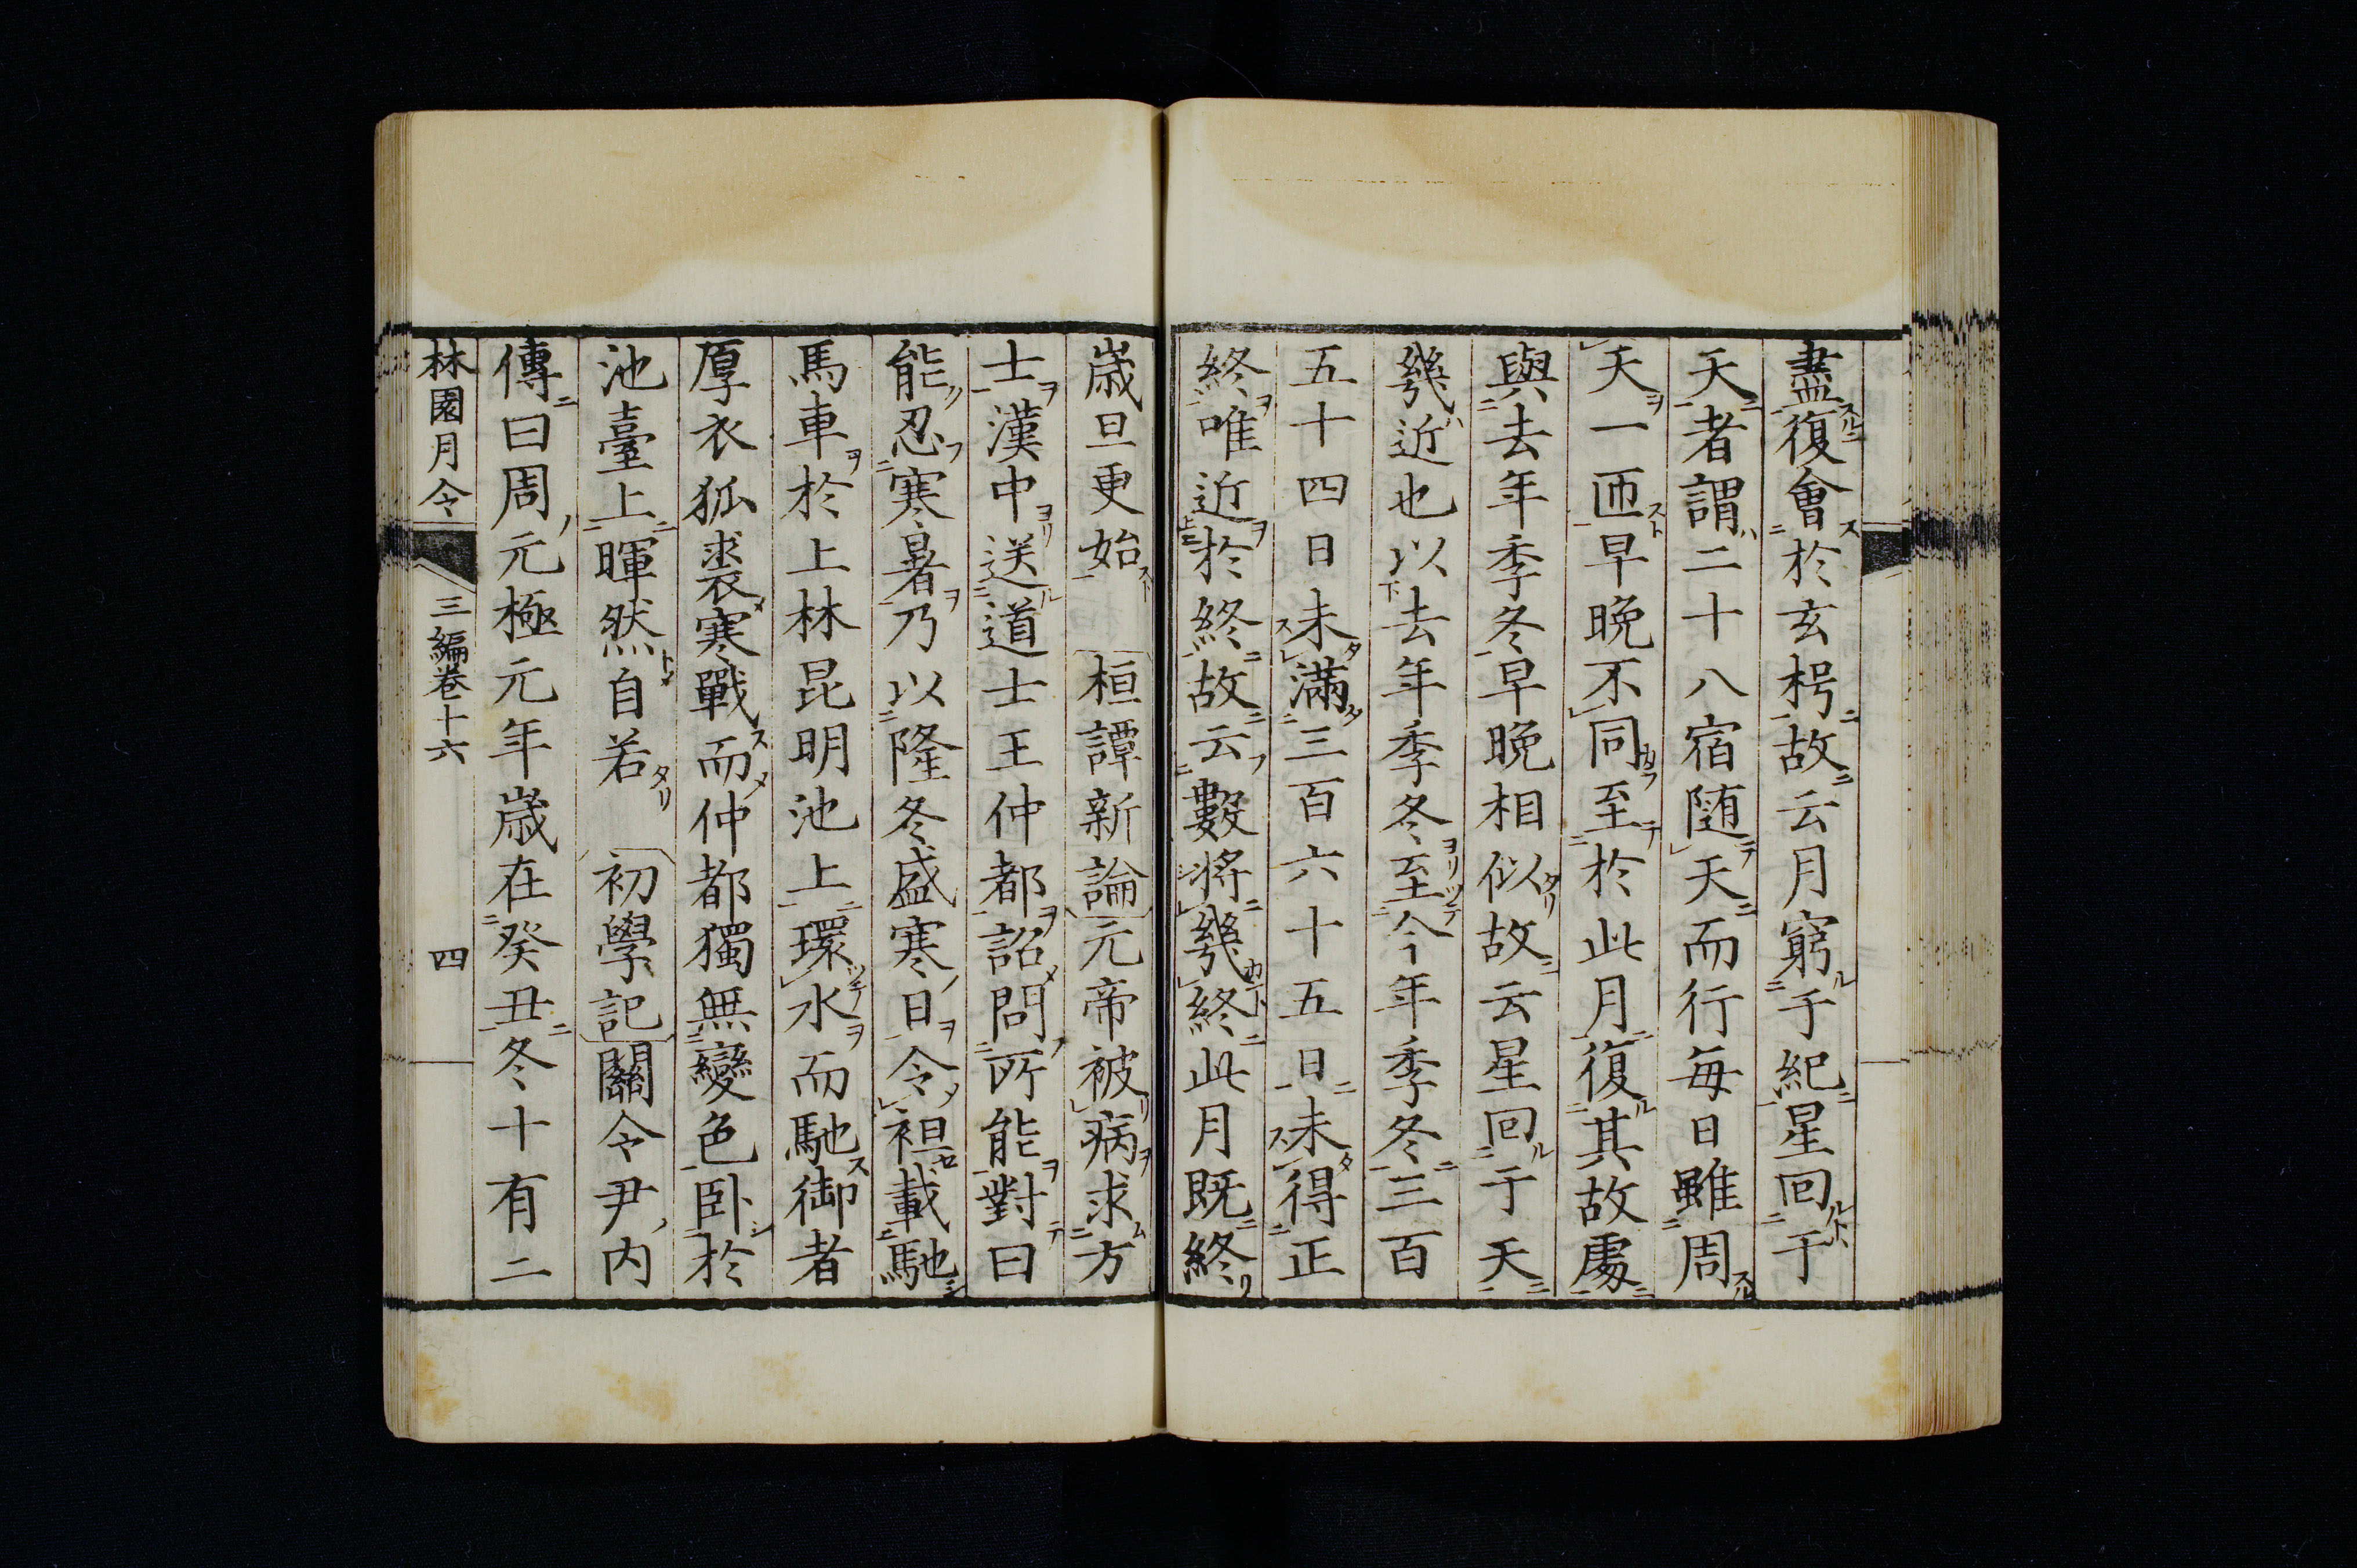 盡復會於玄枵故云月窮于紀星回于
天者謂二十八宿随天而行毎日雖周
天一匝早晩不同至於此月復其故處
與去年季冬早晩相似故云星回于天
幾近也以去年季冬至今年季冬三百
五十四日未滿三百六十五日未得正
終唯近於終故云數將幾終此月既終
歳旦更始 桓譚新論元帝被病求方
士漢中送道士王仲都詔問所能對曰
能忍寒暑乃以隆冬盛寒日令袒載駟
馬車於上林昆明池上環水而馳御者
厚衣狐裘寒戰而仲都獨無變色臥於
池臺上暉然自若 初學記關令尹内
傳曰周元極元年歳在癸丑冬十有二
林園月令 三編巻十六 四